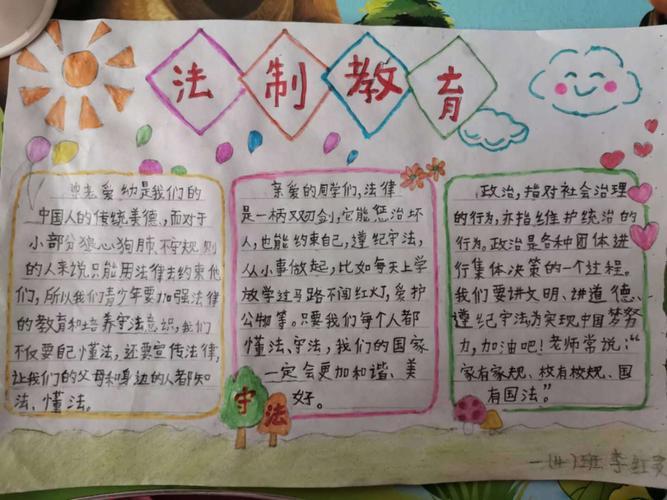 法制教育
老爱幼是我们的
中国人的传统美德,而对于
小部分狼心狗肺不守规则
的人来说只能用法律去约束他
们,所以我们青少年要加强法律
的教育和培养守法意识,我们
不仅要自己懂法,还要宣传法律,
让我们的父母和身边的人都知
法、懂法。
亲爱的同学们,法律
是一柄双刃剑,它能惩治坏
人,也能约束自己,遵纪守法,
从小事做起,比如每天上学
放学过马路不闯红灯,爱护
公物等。只要我们每个人都
懂法、守法,我们的国家
一定会更加和谐、美
好。
政治,指对社会治理
的行为,亦指维护统治的
行为。政治是各种团体进
行集体决策的一个过程。
我们要讲文明、讲道德、
遵纪守法为实现中国梦努
力,加油吧!老师常说:“
家有家规、校有校规、国
有国法”。
守法
一(4)班 李红